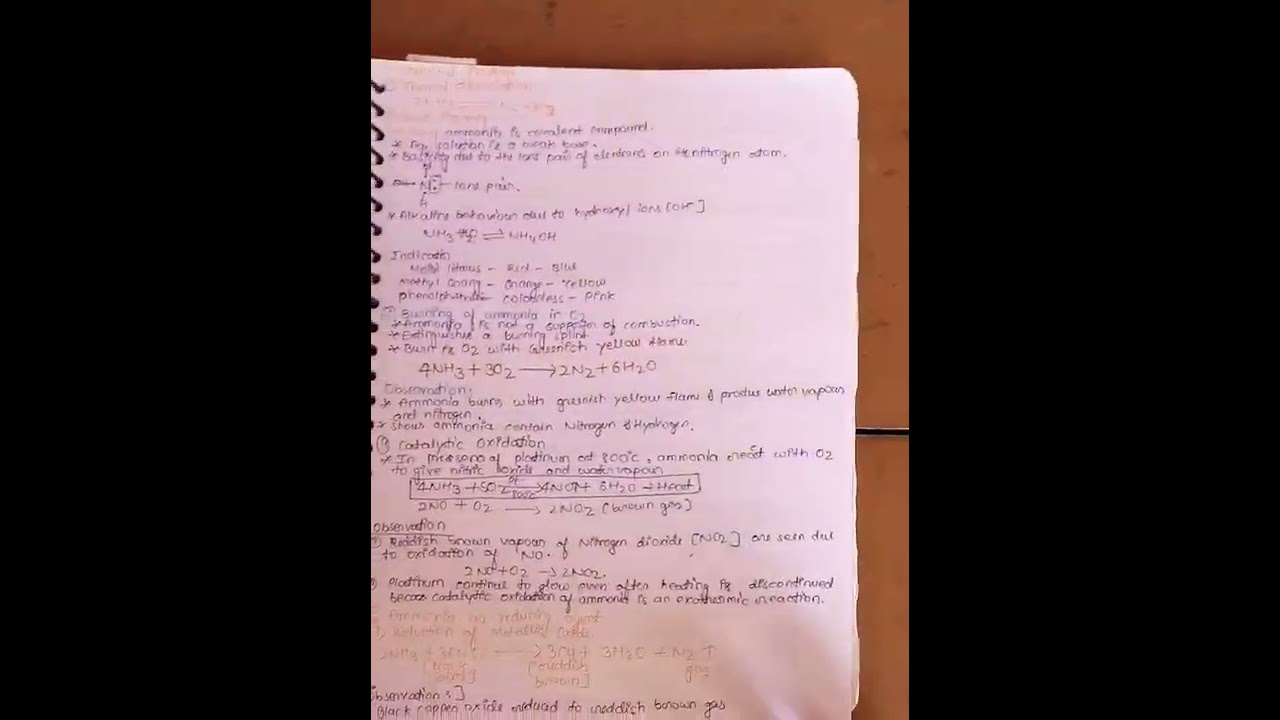 Thermal Dissociation
ammonia is covalent compound.
* Aq. solution is a weak base.
* Basicity due to the lone pair of electrons on the nitrogen atom.
H
N: — lone pair.
H
* Alkaline behaviour due to hydroxyl ions [OH⁻]
NH3 + H2O ⇌ NH4OH
Indicator
litmus - Red - Blue
Methyl Orang - Orange - Yellow
colourless - Pink
Burning of ammonia in O2
* Ammonia is not a supporter of combustion.
* Extinguishes a burning splint
* Burn in O2 with Greenish yellow flame
4NH3 + 3O2 ⟶ 2N2 + 6H2O
Observation:
* Ammonia burns with greenish yellow flame & produs water vapour
and nitrogen.
* Shows ammonia contain Nitrogen & Hydrogen.
Catalytic Oxidation
* In presence of platinum at 800°C, ammonia react with O2
to give nitric oxide and water vapour
4NH3 + 5O2 Pt ⟶ 800°C 4NO↑ + 6H2O + Heat
2NO + O2 ⟶ 2NO2 (brown gas)
Observation
Reddish brown vapour of Nitrogen dioxide [NO2] are seen due
to oxidation of NO.
2NO + O2 → 2NO2.
Platinum continue to glow even after heating is discontinued
catalytic oxidation of ammonia is an exothermic reaction.
Ammonia as reducing agent
1) Reduction of Metallic Oxide
2NH3 + 3CuO ⟶ 3Cu + 3H2O + N2↑
[reddish gas
brown]
Observation:]
Black copper oxide reduced to reddish brown gas